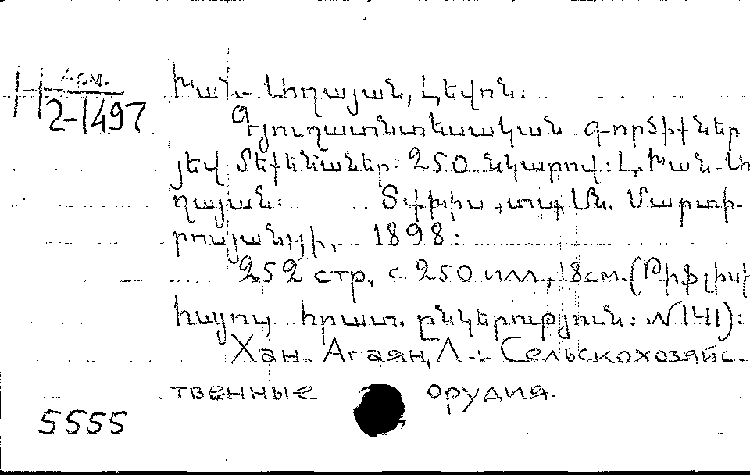 Арм.
Н 2-1497
Խան-Աղայան, Լեվոն:
Գյուղատնտեսական գործիքներ
յեվ մեքենաներ: 250 նկարով: Լ. Խան-Ա
ղայան: Տփխիս, տպ. Մ. Մարտի-
րոսյանցի, 1898:
252 стр. с 250 илл., 18см. (Թիֆլիսի
հայոց հրատ. ընկերություն: № 141):
Хан-Агаян, Л.: Сельскохозяйс-
твенные орудия.
5555